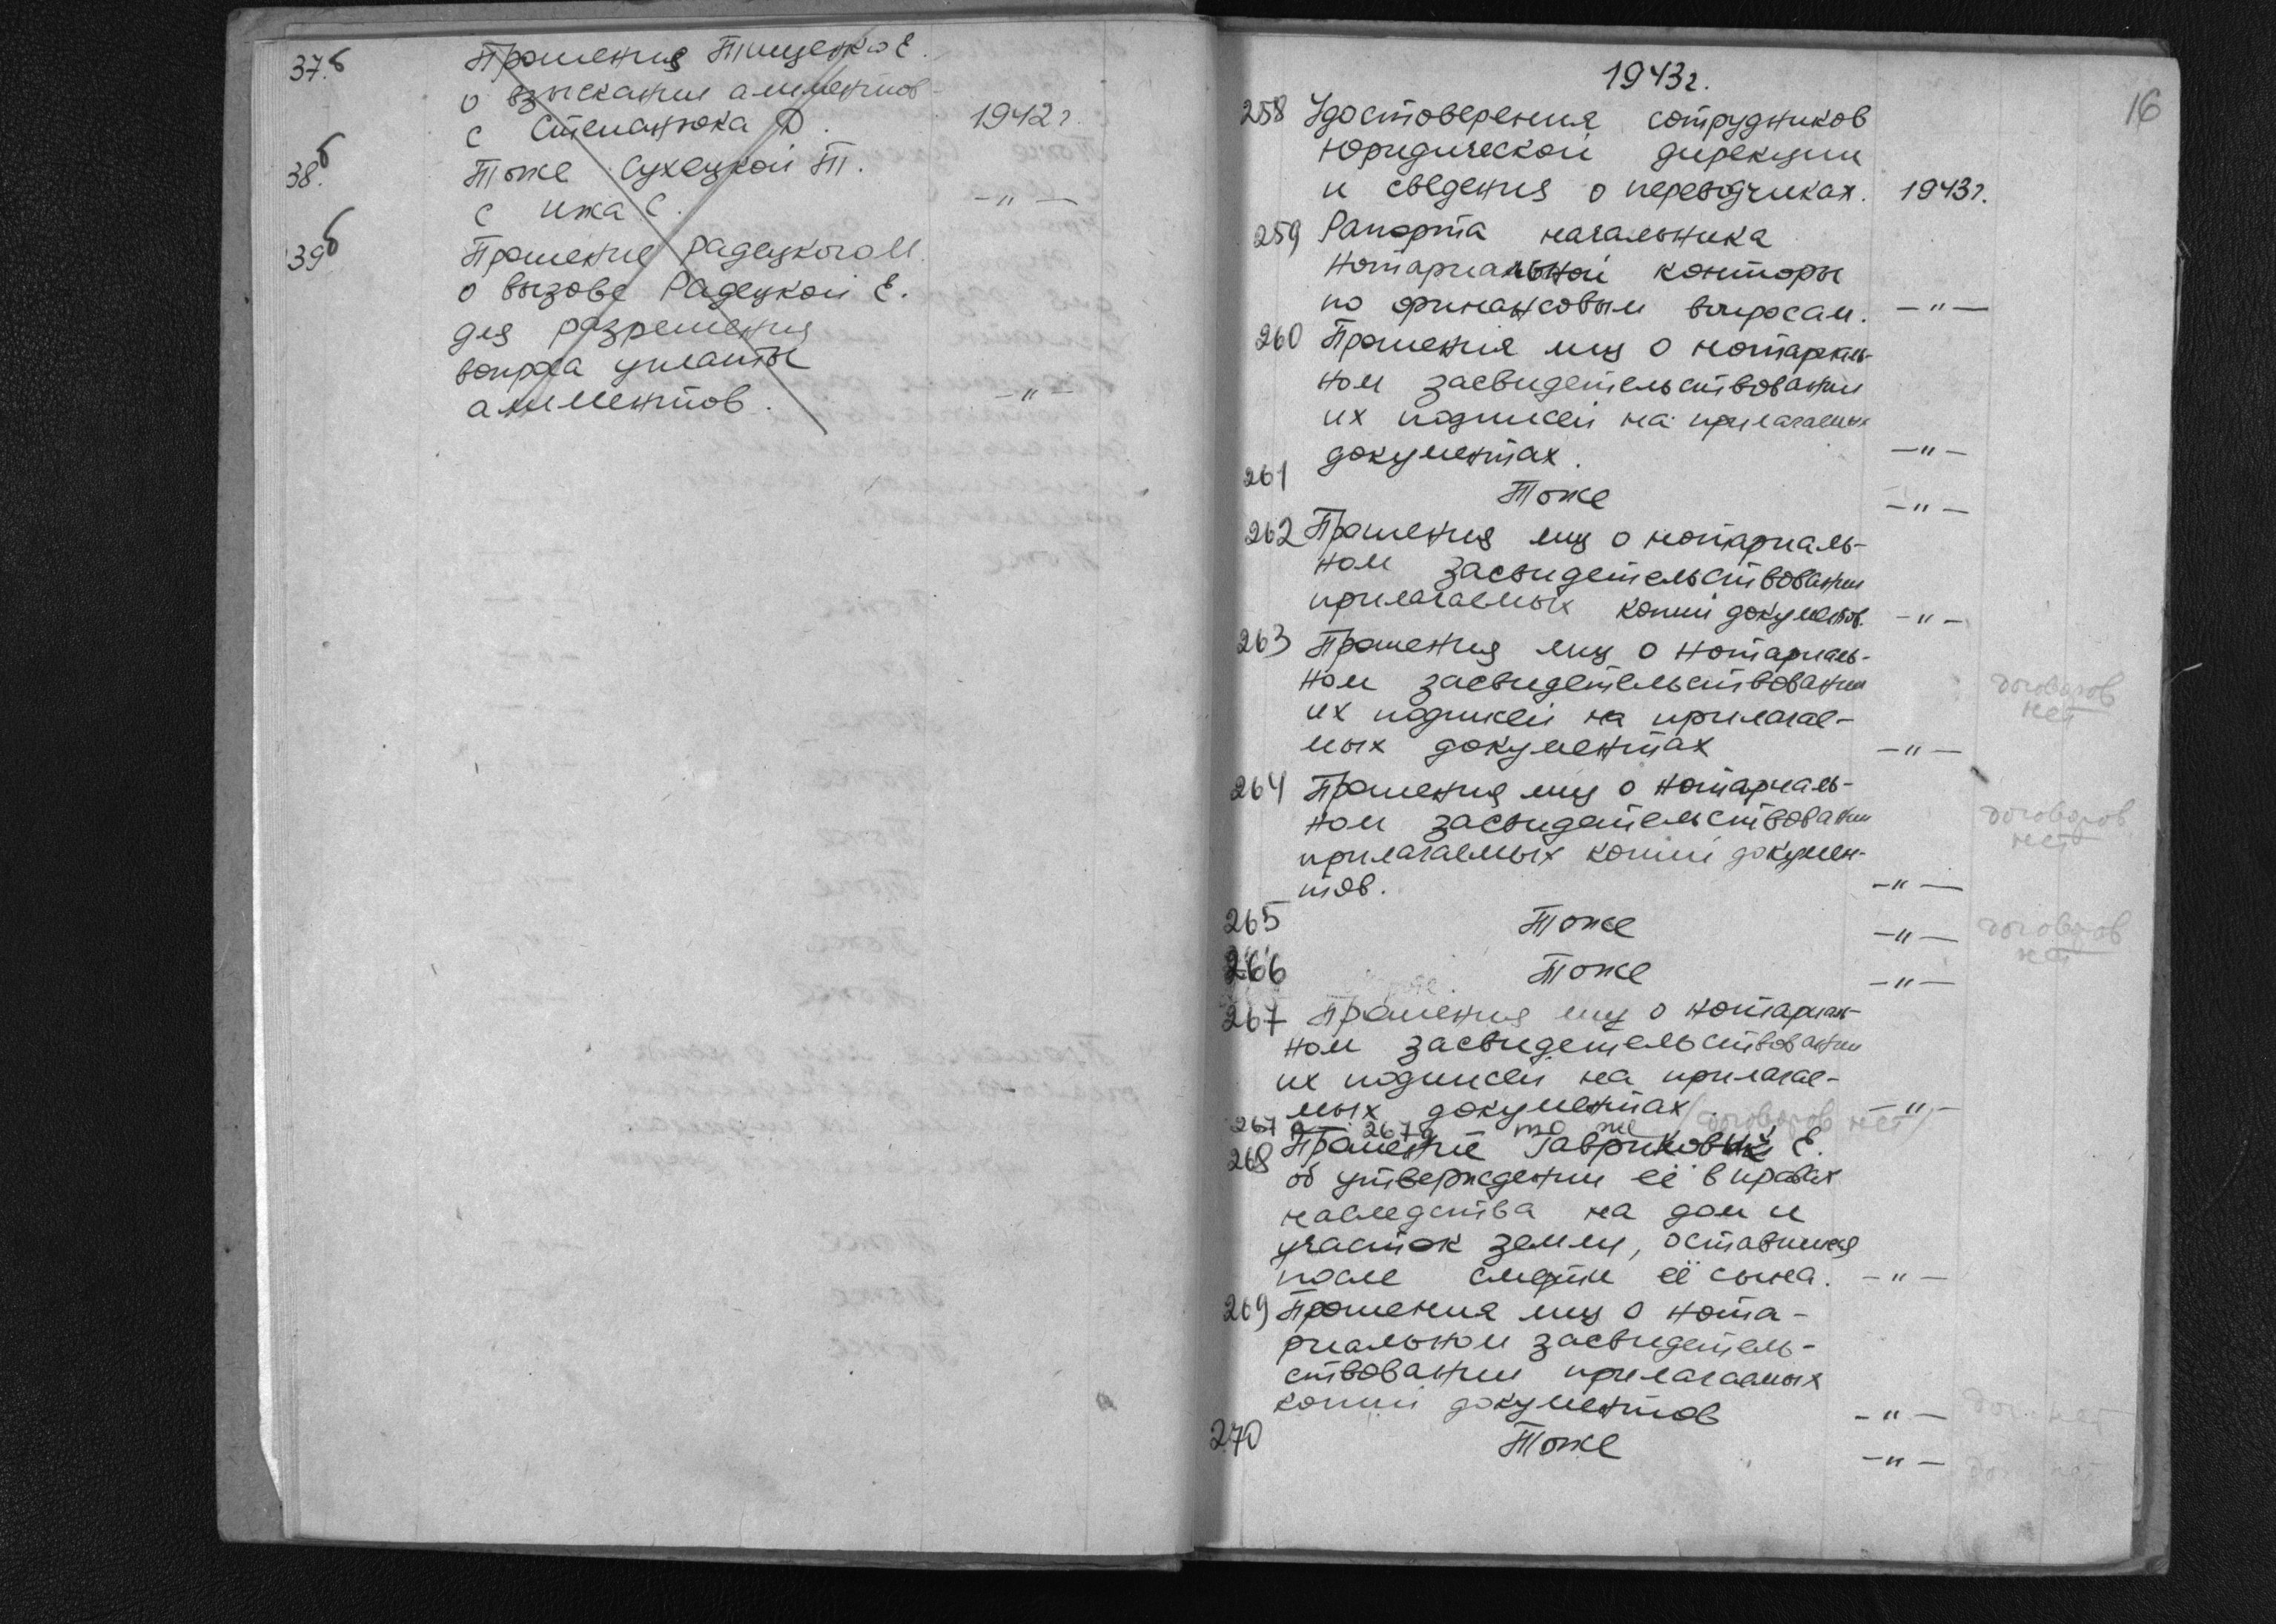 37.б Прошения Тищенко Е.
о взыскании алиментов
с Степанюка Д. 1942 г.
38.б Тоже Сухецкой Т.
с Ижа С. -"-
39б Прошение Радецкого М.
о вызове Радецкой Е.
для разрешения
вопроса уплаты
алиментов. -"-
16
1943г.
258 Удостоверения сотрудников
юридической дирекции
и сведения о переводчиках. 1943г.
259 Рапорта начальника
нотариальной конторы
по финансовым вопросам. -"-
260 Прошения лиц о нотариаль-
ном засвидетельствовании
их подписей на прилагаемых
документах. -"-
261 Тоже -"-
262 Прошения лиц о нотариаль-
ном засвидетельствовании
прилагаемых копий документов. -"-
263 Прошения лиц о нотариаль-
ном засвидетельствовании
договоров
нет
их подписей на прилагае-
мых документах -"-
264 Прошения лиц о нотариаль-
ном засвидетельствовании
договоров
нет
прилагаемых копий докумен-
тов. -"-
265 Тоже -"- договоров
нет
266 Тоже -"-
267 Прошения лиц о нотариаль-
ном засвидетельствовании
их подписей на прилагае-
мых документах. -"-
267 а 267 то же /договоров нет/
268 Прошение Е.
об утверждении её в правах
наследства на дом и
участок земли, оставшиеся
после смерти её сына. -"-
269 Прошения лиц о нота-
риальном засвидетель-
ствовании прилагаемых
копий документов -"- дог. нет
270 Тоже -"- дог. нет